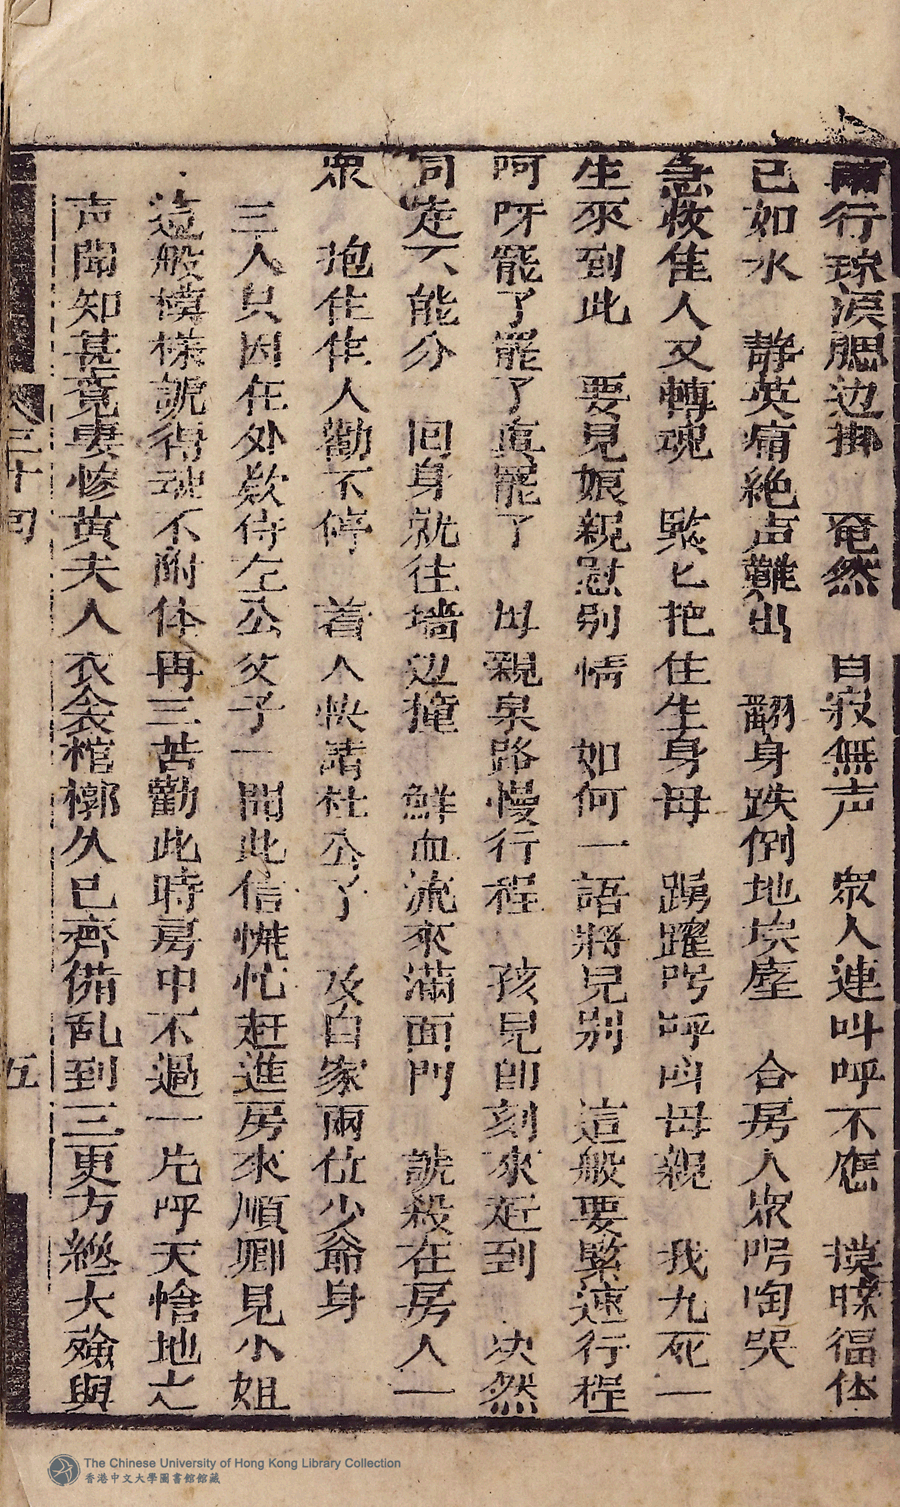 兩行琼淚腮边掛　奄然　自寂無声　衆人連叫呼不應　摸　福体
已如水　静英痛絶声難出　翻身跌倒地埃塵　合房人衆㕧啕哭
急救隹人又轉魂　緊匕抱住生身母　踴躍㕧呼叫母親　我九死一
生來到此　要見娘親慰别情　如何一語將兒别　這般要緊速行程
呵呀罷了罷了真罷了　母親泉路慢行程　孩兒即刻來赶到　决然
同走不能分　回身就往墙边撞　鮮血流來滿面門　諕殺在房人一
衆　抱住隹人勸不停　着人快請杜公了　及自家兩位少爺身
三人只因在外欵待左公父子一聞此信慌忙赶進房來順卿見小姐
這般模様諕得魂不附体再三苦勸此時房中不過一片呼天愴地之
声聞知甚竟妻慘黄夫人衣衾棺槨久已齊備乱到三更方纔大殮與
三十回
五
The Chinese University of Hong Kong Library Collection
香港中文大學圖書館館藏